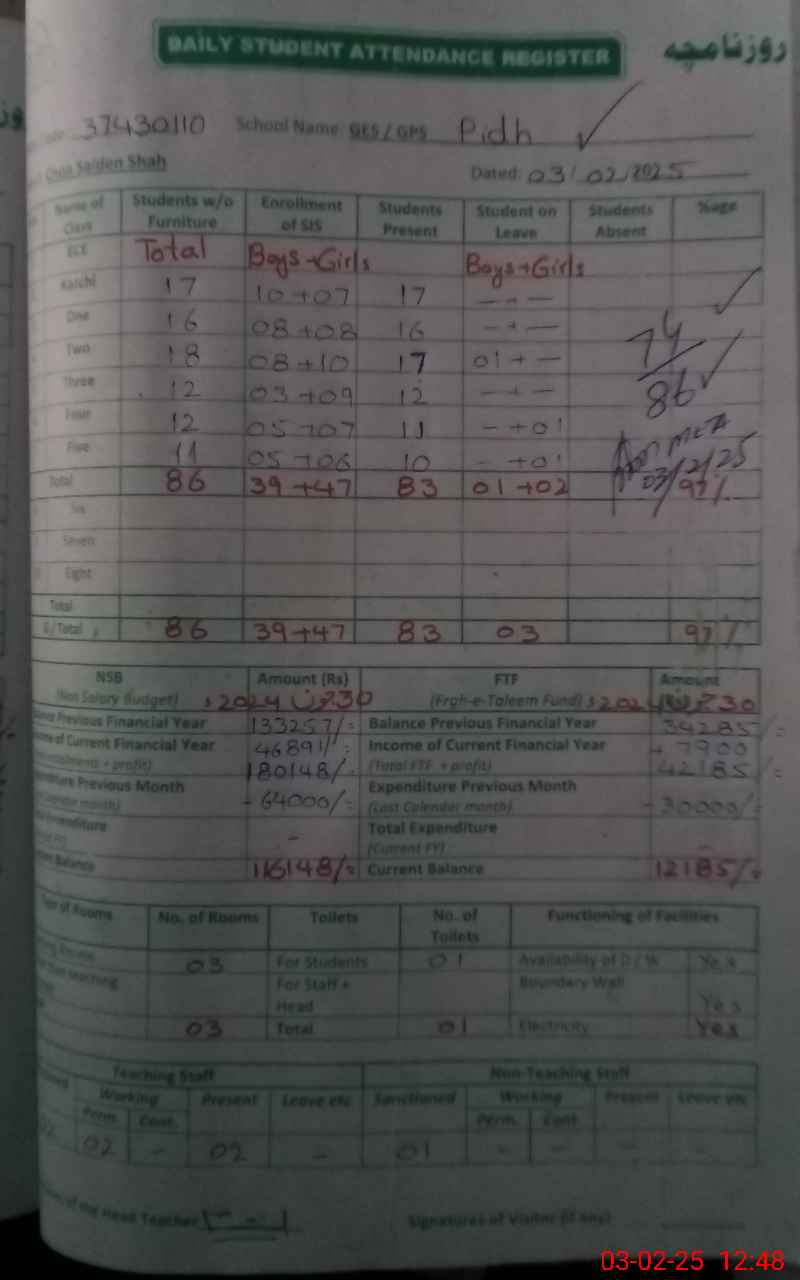 DAILY STUDENT ATTENDANCE REGISTER روزنامچہ
37430110 School Name GES / GPS Pidh
Choa Saiden Shah Dated: 03/02/2025
Name of Class Students w/o Furniture Enrollment of SIS Students Present Student on Leave Students Absent %age
ECE Total Boys+Girls Boys+Girls
Katchi 17 10+07 17 -+-
One 16 08+08 16 -+-
Two 18 08+10 17 01+-
74/86
Three 12 03+09 12 -+-
Four 12 05+07 11 -+01
Five 11 05+06 10 -+01
03/2/25
Total 86 39+47 83 01+02 97%
Six
Seven
Eight
Total
G/Total 86 39+47 83 03 97%
NSB Amount (Rs) FTF Amount
(Non Salary Budget) 30 جون 2024 (Frgh-e-Taleem Fund) 30 جون 2024
Previous Financial Year 133257/= Balance Previous Financial Year 34285/=
of Current Financial Year 46891/= Income of Current Financial Year +7900
+ profit) 180148/= (Total FTF + profit) 42185/=
Previous Month -64000/= Expenditure Previous Month -30000/=
month) (Last Calender month)
- Total Expenditure -
(Current FY)
Balance 116148/= Current Balance 12185/=
Type of Rooms No. of Rooms Toilets No. of Toilets Functioning of Facilities
03 For Students 01 Availability of D / W Yes
teaching For Staff + Head Boundary Wall Yes
03 Total 01 Electricity Yes
Teaching Staff Non-Teaching Staff
Working Present Leave etc Sanctioned Working Present Leave etc
Perm. Cont. Perm. Cont
02 02 - 02 - 01 - - - -
of the Head Teacher Signatures of Visitor (if any)
03-02-25 12:48